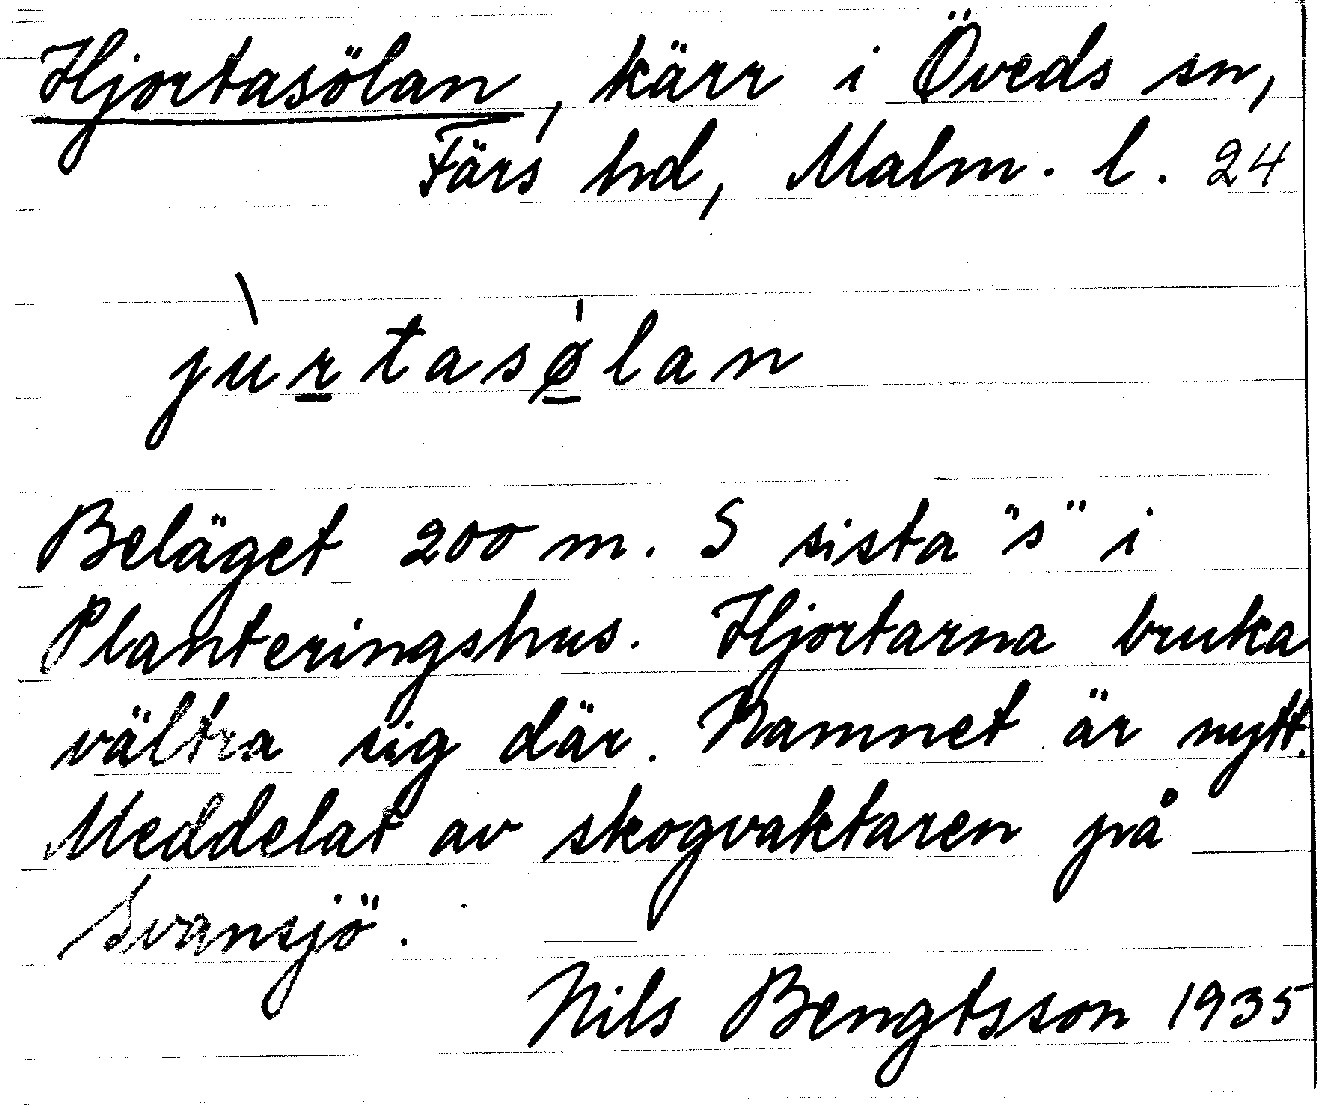 Hjortasölan, kärr i Öveds sn,
Färs hd, Malm. l. 24
jùrtasø̱lan
Beläget 200 m. S sista "s" i
Planteringshus. Hjortarna bruka
vältra sig där. Namnet är nytt.
Meddelat av skogvaktaren på
Svansjö.
Nils Bengtsson 1935